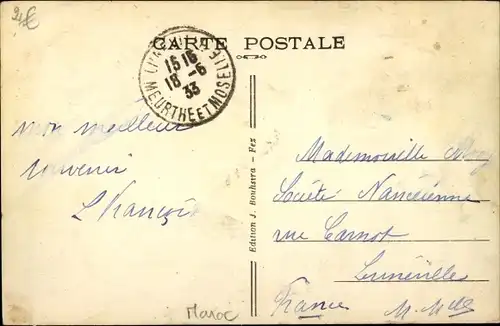 CARTE POSTALE
15 16
18 - 6
33
MEURTHE ET MOSELLE
mon meilleur
souvenir
L François
Edition J. Bouhsira - Fez
Mademoiselle
Société Nancéienne
rue Carnot
Lunéville
France M. Mlle
Maroc